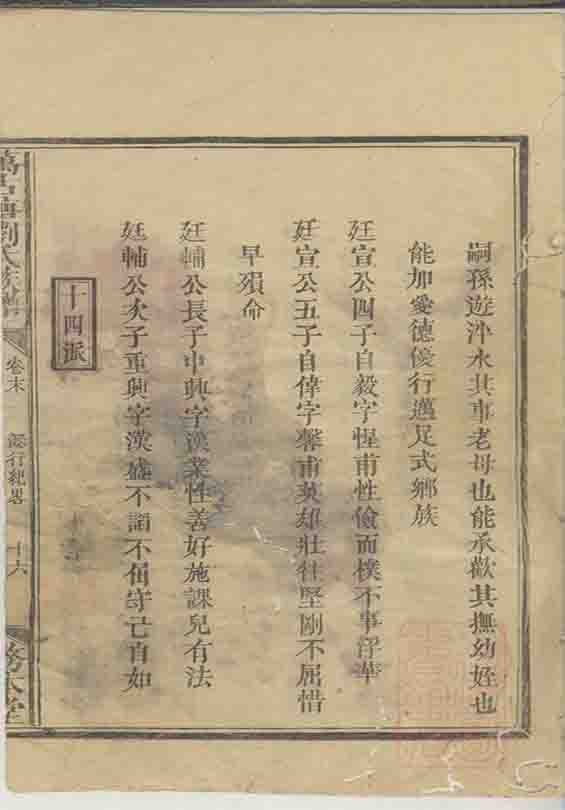 嗣孫遊泮水其事老母也能承歡其撫幼姪也
能加愛德優行邁足式鄉族
廷宣公四子自毅字惺甫性儉而樸不事浮華
廷宣公五子自偉字馨甫英雄壯往堅剛不屈惜
早殞命
廷輔公長子中興字漢業性善好施課兒有法
廷輔公次子重興字漢盛不謟不俏守己自如
十四派
劉氏族譜
卷末
懿行紀畧
十六
務本堂